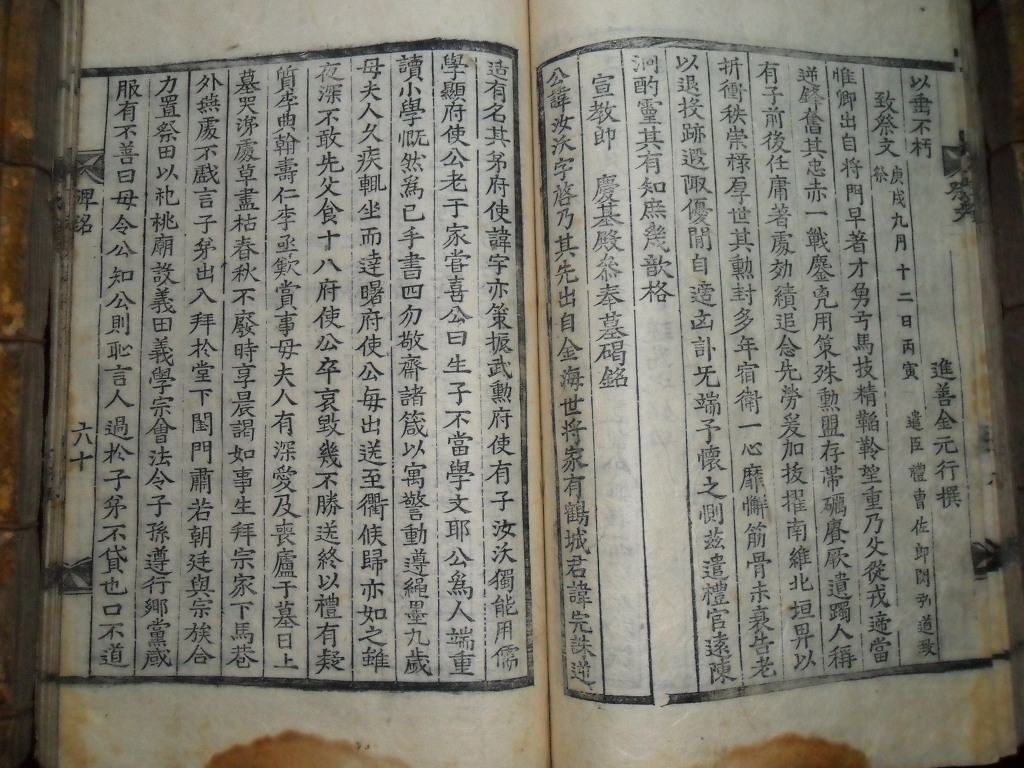 以垂不朽
進善金元行撰
致祭文 庚戌九月十二日丙寅 遣臣禮曹佐郎閔弘道致祭
惟卿出自將門早著才勇弓馬技精韜鈐望重乃父從戎適當
逆鋒奮其忠赤一戰鏖克用策殊勳盟存帶礪賡厥遺躅人稱
有子前後任庸著處効績追念先勞爰加拔擢南維北垣畀以
折衝秩崇祿厚世其勳封多年宿衛一心靡懈筋骨未衰告老
以退投跡遐陬優閒自適凶訃旡端予懷之惻玆遣禮官遠陳
泂酌靈其有知庶幾歆格
宣敎郎 慶基殿參奉墓碣銘
公諱汝沃字啓乃其先出自金海世將家有鶴城君諱完誅逆
造有名其弟府使諱宇亦策振武勳府使有子汝沃獨能用儒
學顯府使公老于家甞喜公曰生子不當學文耶公爲人端重
讀小學慨然爲己手書四勿敬齋諸箴以寓警動遵繩墨九歲
母夫人久疾輒坐而達曙府使公每出送至衢候歸亦如之雖
夜深不敢先父食十八府使公卒哀毁幾不勝送終以禮有疑
質李典翰壽仁李丞歎賞事母夫人有深愛及喪廬于墓日上
墓哭涕處草盡枯春秋不廢時享晨謁如事生拜宗家下馬巷
外燕處不戲言子弟出入拜於堂下閨門肅若朝廷與宗族合
力置祭田以祀祧廟設義田義學宗會法令子孫遵行鄕黨咸
服有不善曰毋令公知公則恥言人過於子弟不貸也口不道
碑銘
六十